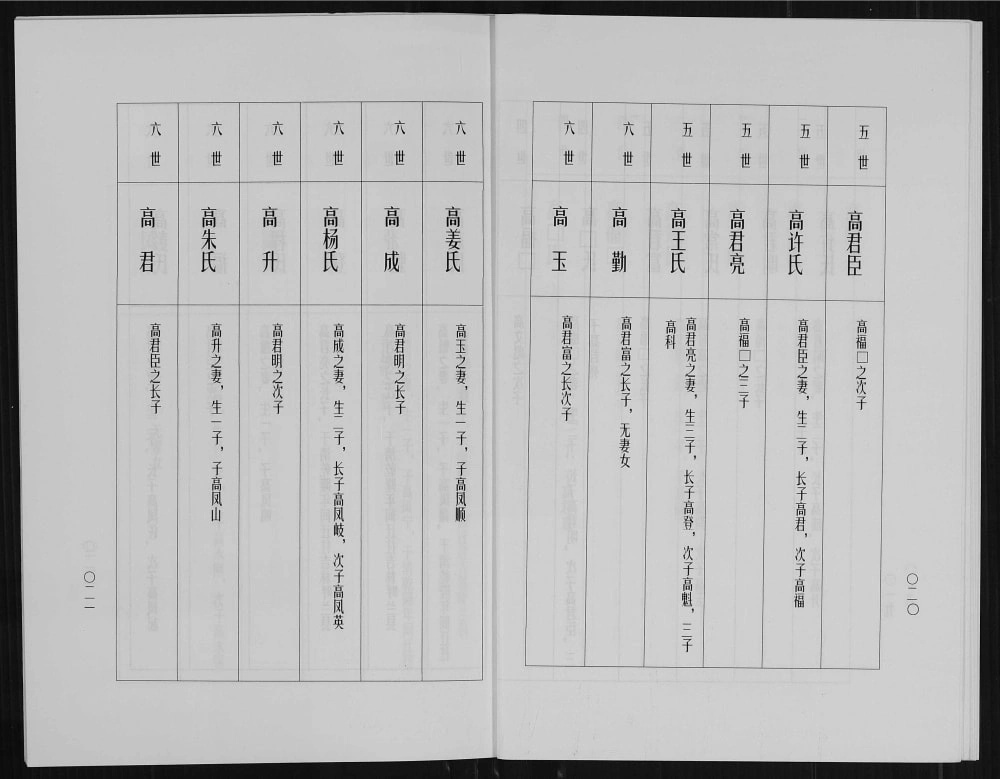 五世
高君臣
高福□之次子
五世
高许氏
高君臣之妻，生二子，长子高君，次子高福
五世
高君亮
高福□之三子
五世
高王氏
高君亮之妻，生三子，长子高登，次子高魁，三子
高科
六世
高勤
高君富之长子，无妻女
六世
高玉
高君富之长次子
〇二〇
六世
高姜氏
高玉之妻，生一子，子高凤顺
六世
高成
高君明之长子
六世
高杨氏
高成之妻，生二子，长子高凤岐，次子高凤英
六世
高升
高君明之次子
六世
高朱氏
高升之妻，生一子，子高凤山
六世
高君
高君臣之长子
〇二一